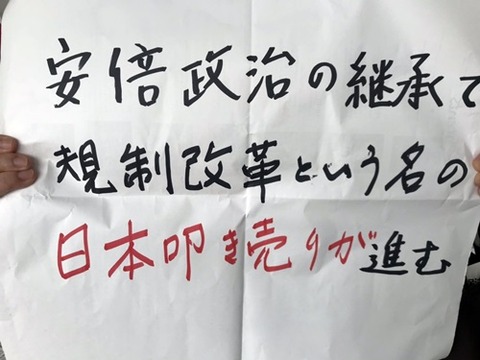 安倍政治の継承で
規制改革という名の
日本叩き売りが進む